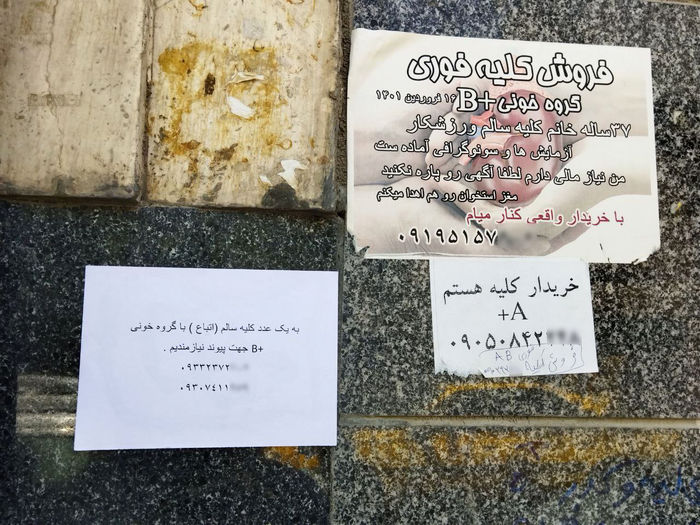 فروش کلیه فوری
گروه خونی +B ۱۴ فروردین ۱۴۰۱
۳۷ساله خانم کلیه سالم ورزشکار
آزمایش ها و سونوگرافی آماده ست
من نیاز مالی دارم لطفا آگهی رو پاره نکنید
مغز استخوان رو هم اهدا میکنم
با خریدار واقعی کنار میام
۰۹۱۹۵۱۵۷
خریدار کلیه هستم
A+
۰۹۰۵۰۸۴۲
فروش کلیه AB
به یک عدد کلیه سالم (اتباع ) با گروه خونی
B+ جهت پیوند نیازمندیم .
۰۹۳۳۲۳۷۲
۰۹۳۰۷۴۱۱